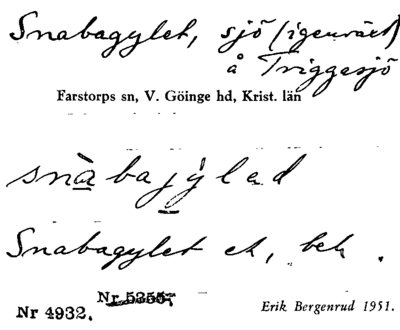 Snabagylet, sjö (igenväxt)
å Triggesjö
Farstorps sn, V. Göinge hd, Krist. län
snàbajy̍lad
Snabagylet ek, beh.
Nr 5355;
Nr 4932.
Erik Bergenrud 1951.